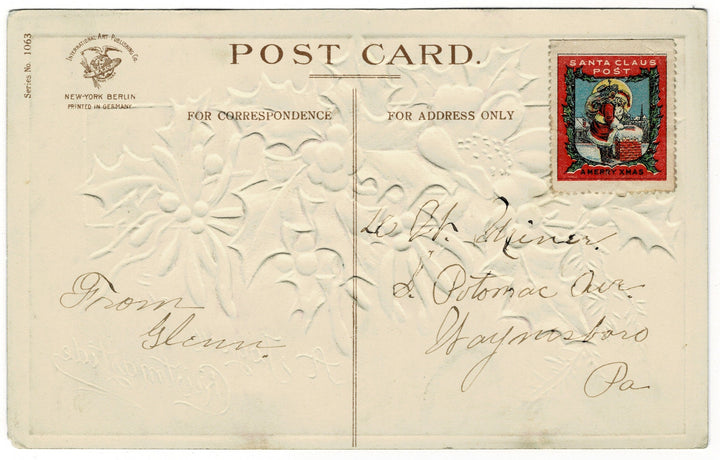 Series No. 1063
INTERNATIONAL ART PUBLISHING Co.
NEW-YORK BERLIN
PRINTED IN GERMANY
POST CARD.
FOR CORRESPONDENCE
FOR ADDRESS ONLY
SANTA CLAUS
POST
A MERRY XMAS
From
Glenn.
Miner.
S. Potomac Ave.
Waynesboro
Pa